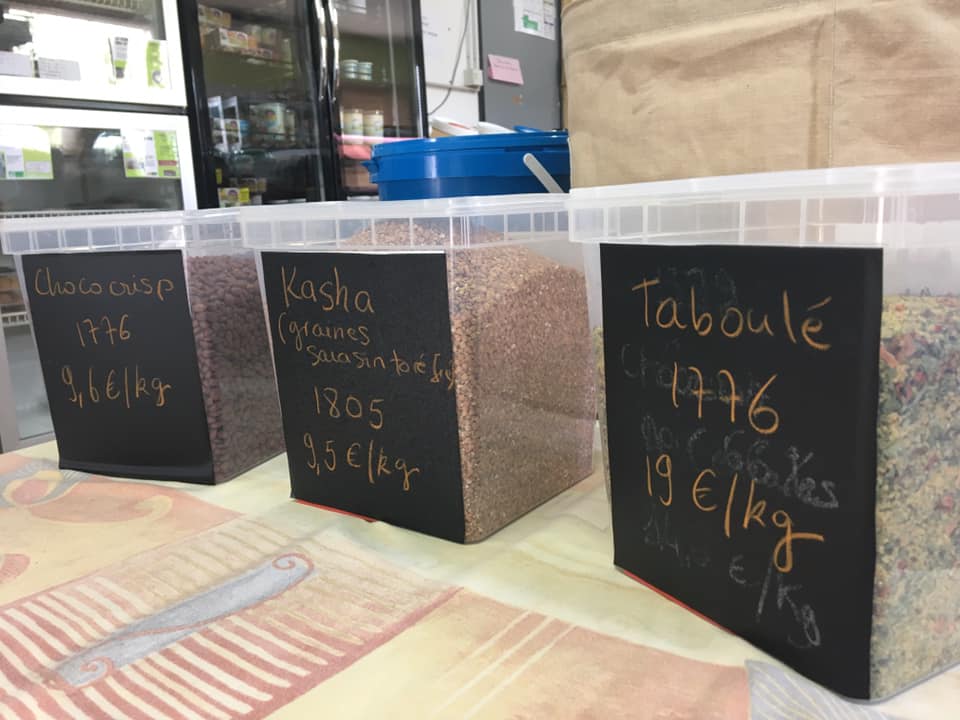 Choco crisp
1776
9,6 €/kg
Kasha
(graines
sarasin
1805
9,5 €/kg
Taboulé
1776
19 €/kg
€/kg